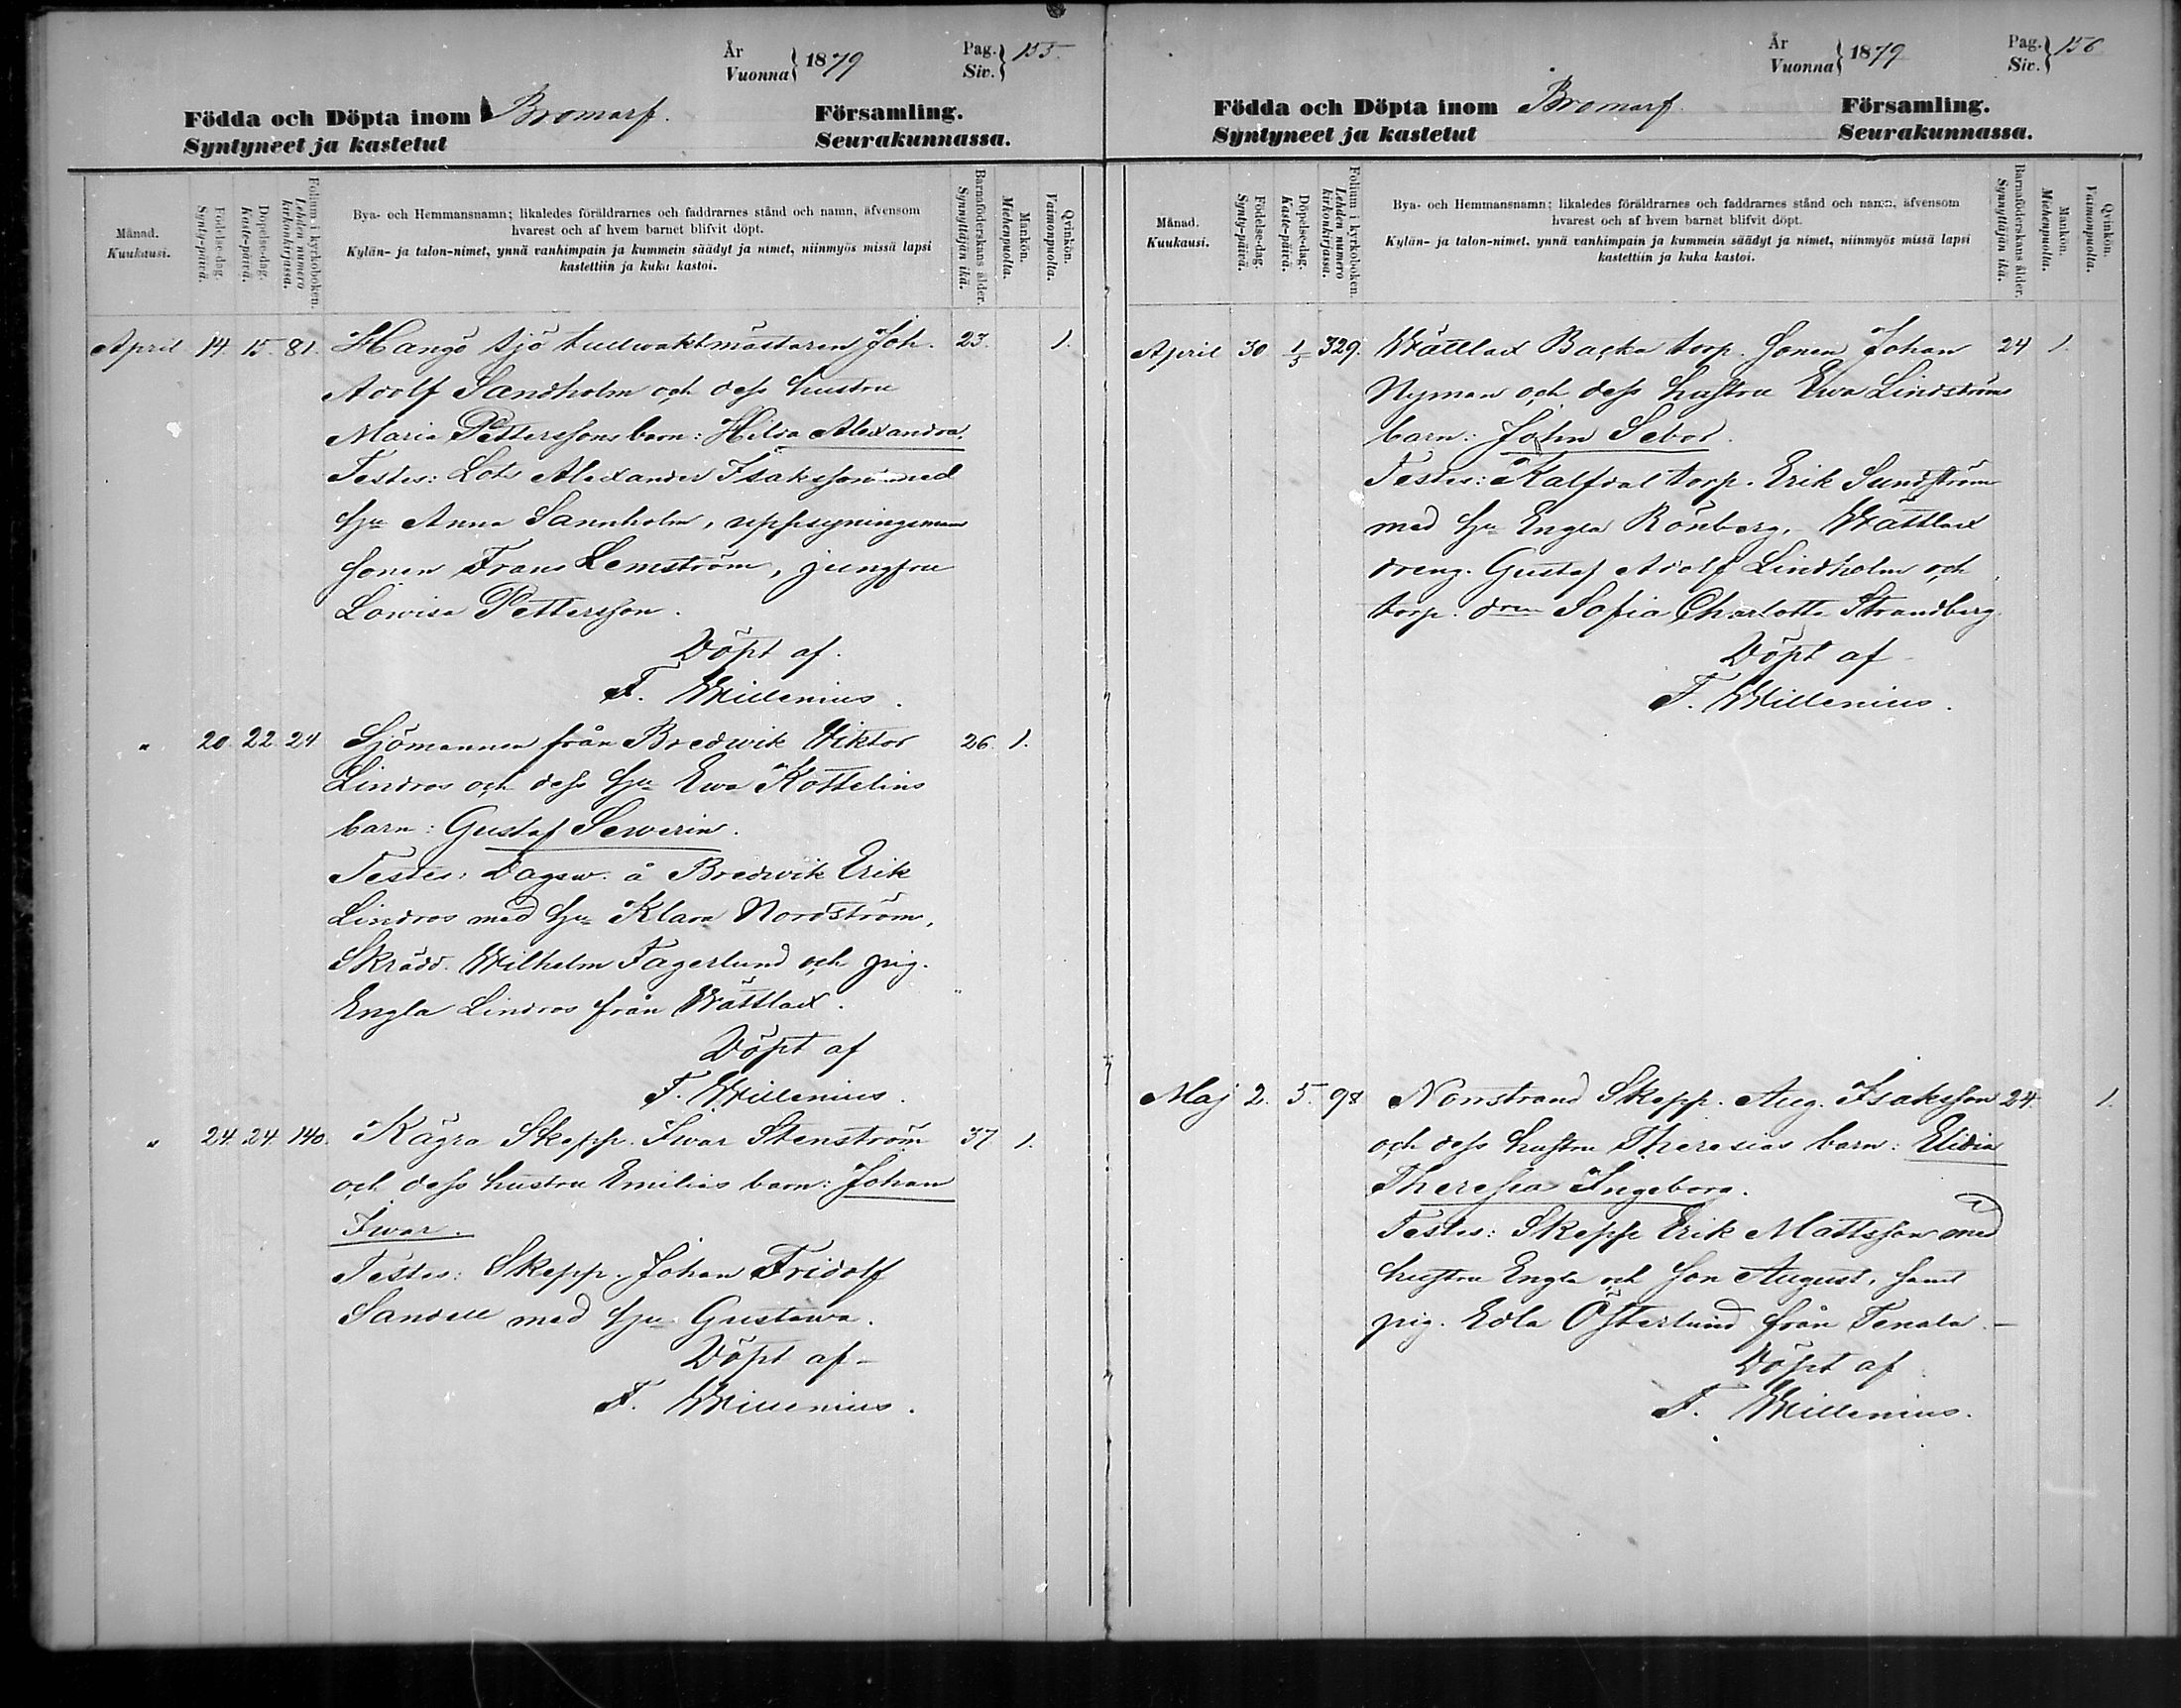 År
Vuonna } 1879
Pag.
Siv. } 155.
Födda och Döpta inom Bromarf. Församling.
Syntyneet ja kastetut Seurakunnassa.
Månad.
Kuukausi.
Födelse-dag.
Synty-päivä.
Döpelse-dag.
Kaste-päivä.
Folium i kyrkoboken.
Lehden numero
kirkonkirjassa.
Bya- och Hemmansnamn; likaledes föräldrarnes och faddrarnes stånd och namn, äfvensom
hvarest och af hvem barnet blifvit döpt.
Kylän- ja talon-nimet, ynnä vanhimpain ja kummein säädyt ja nimet, niinmyös missä lapsi
kastettiin ja kuka kastoi.
Barnaföderskans ålder.
Synnyttäjän ikä.
Mankön.
Miehenpuolta.
Qvinkön.
Vaimonpuolta.
April 14. 15. 81. Hangö sjötullwaktmästaren Joh. 23. 1.
Adolf Sandholm och dess hustru
Maria Petterssons barn: Hilda Alexandra.
Testes: Lots Alexander Isaksson med
hu Anna Sannholm, uppsyningsman
sonen Frans Lemström, jungfru
Lowisa Pettersson.
Döpt af.
F. Willenius.
" 20. 22. 24 Sjömannen från Bredwik Wiktor 26. 1.
Lindros och dess hu Ewa Kottelins
barn: Gustaf Sewerin.
Testes: Dagsw. å Bredwik Erik
Lindros med hu Klara Nordström,
Skrädd. Wilhelm Fagerlund och pig.
Engla Lindros från Wättlax.
Döpt af
F. Willenius.
" 24. 24. 140. Kägra Skepp. Iwar Stenström 37 1.
och dess hustru Emilias barn: Johan
Iwar.
Testes: Skepp. Johan Fridolf
Sandell med hu Gustawa.
Döpt af
F. Willenius.
År
Vuonna } 1879
Pag.
Siv. } 156
Födda och Döpta inom Bromarf. Församling.
Syntyneet ja kastetut Seurakunnassa.
Månad.
Kuukausi.
Födelse-dag.
Synty-päivä.
Döpelse-dag.
Kaste-päivä.
Folium i kyrkoboken.
Lehden numero
kirkonkirjassa.
Bya- och Hemmansnamn; likaledes föräldrarnes och faddrarnes stånd och namn, äfvensom
hvarest och af hvem barnet blifvit döpt.
Kylän- ja talon-nimet, ynnä vanhimpain ja kummein säädyt ja nimet, niinmyös missä lapsi
kastettiin ja kuka kastoi.
Barnaföderskans ålder.
Synnyttäjän ikä.
Mankön.
Miehenpuolta.
Qvinkön.
Vaimonpuolta.
April 30 1/5 329. Wättlax Backa torp. sonen Johan 24 1.
Nyman och dess hustru Ewa Lindströms
barn: John Sebod.
Testes: Kalfdal torp. Erik Sundström
med hu Engla Rönberg, Wättlax
dreng. Gustaf Adolf Lindholm och
torp. dren Sofia Charlotta Strandberg.
Döpt af
F. Willenius.
Maj 2. 5. 98 Norrstrand Skepp. Aug. Isaksson 24. 1.
och dess hustru Theresias barn: Elidia
Theresia Ingeborg.
Testes: Skepp Erik Mattsson med
hustru Engla och son August, samt
pig. Edla Österlund från Tenala.
Döpt af
F. Willenius.